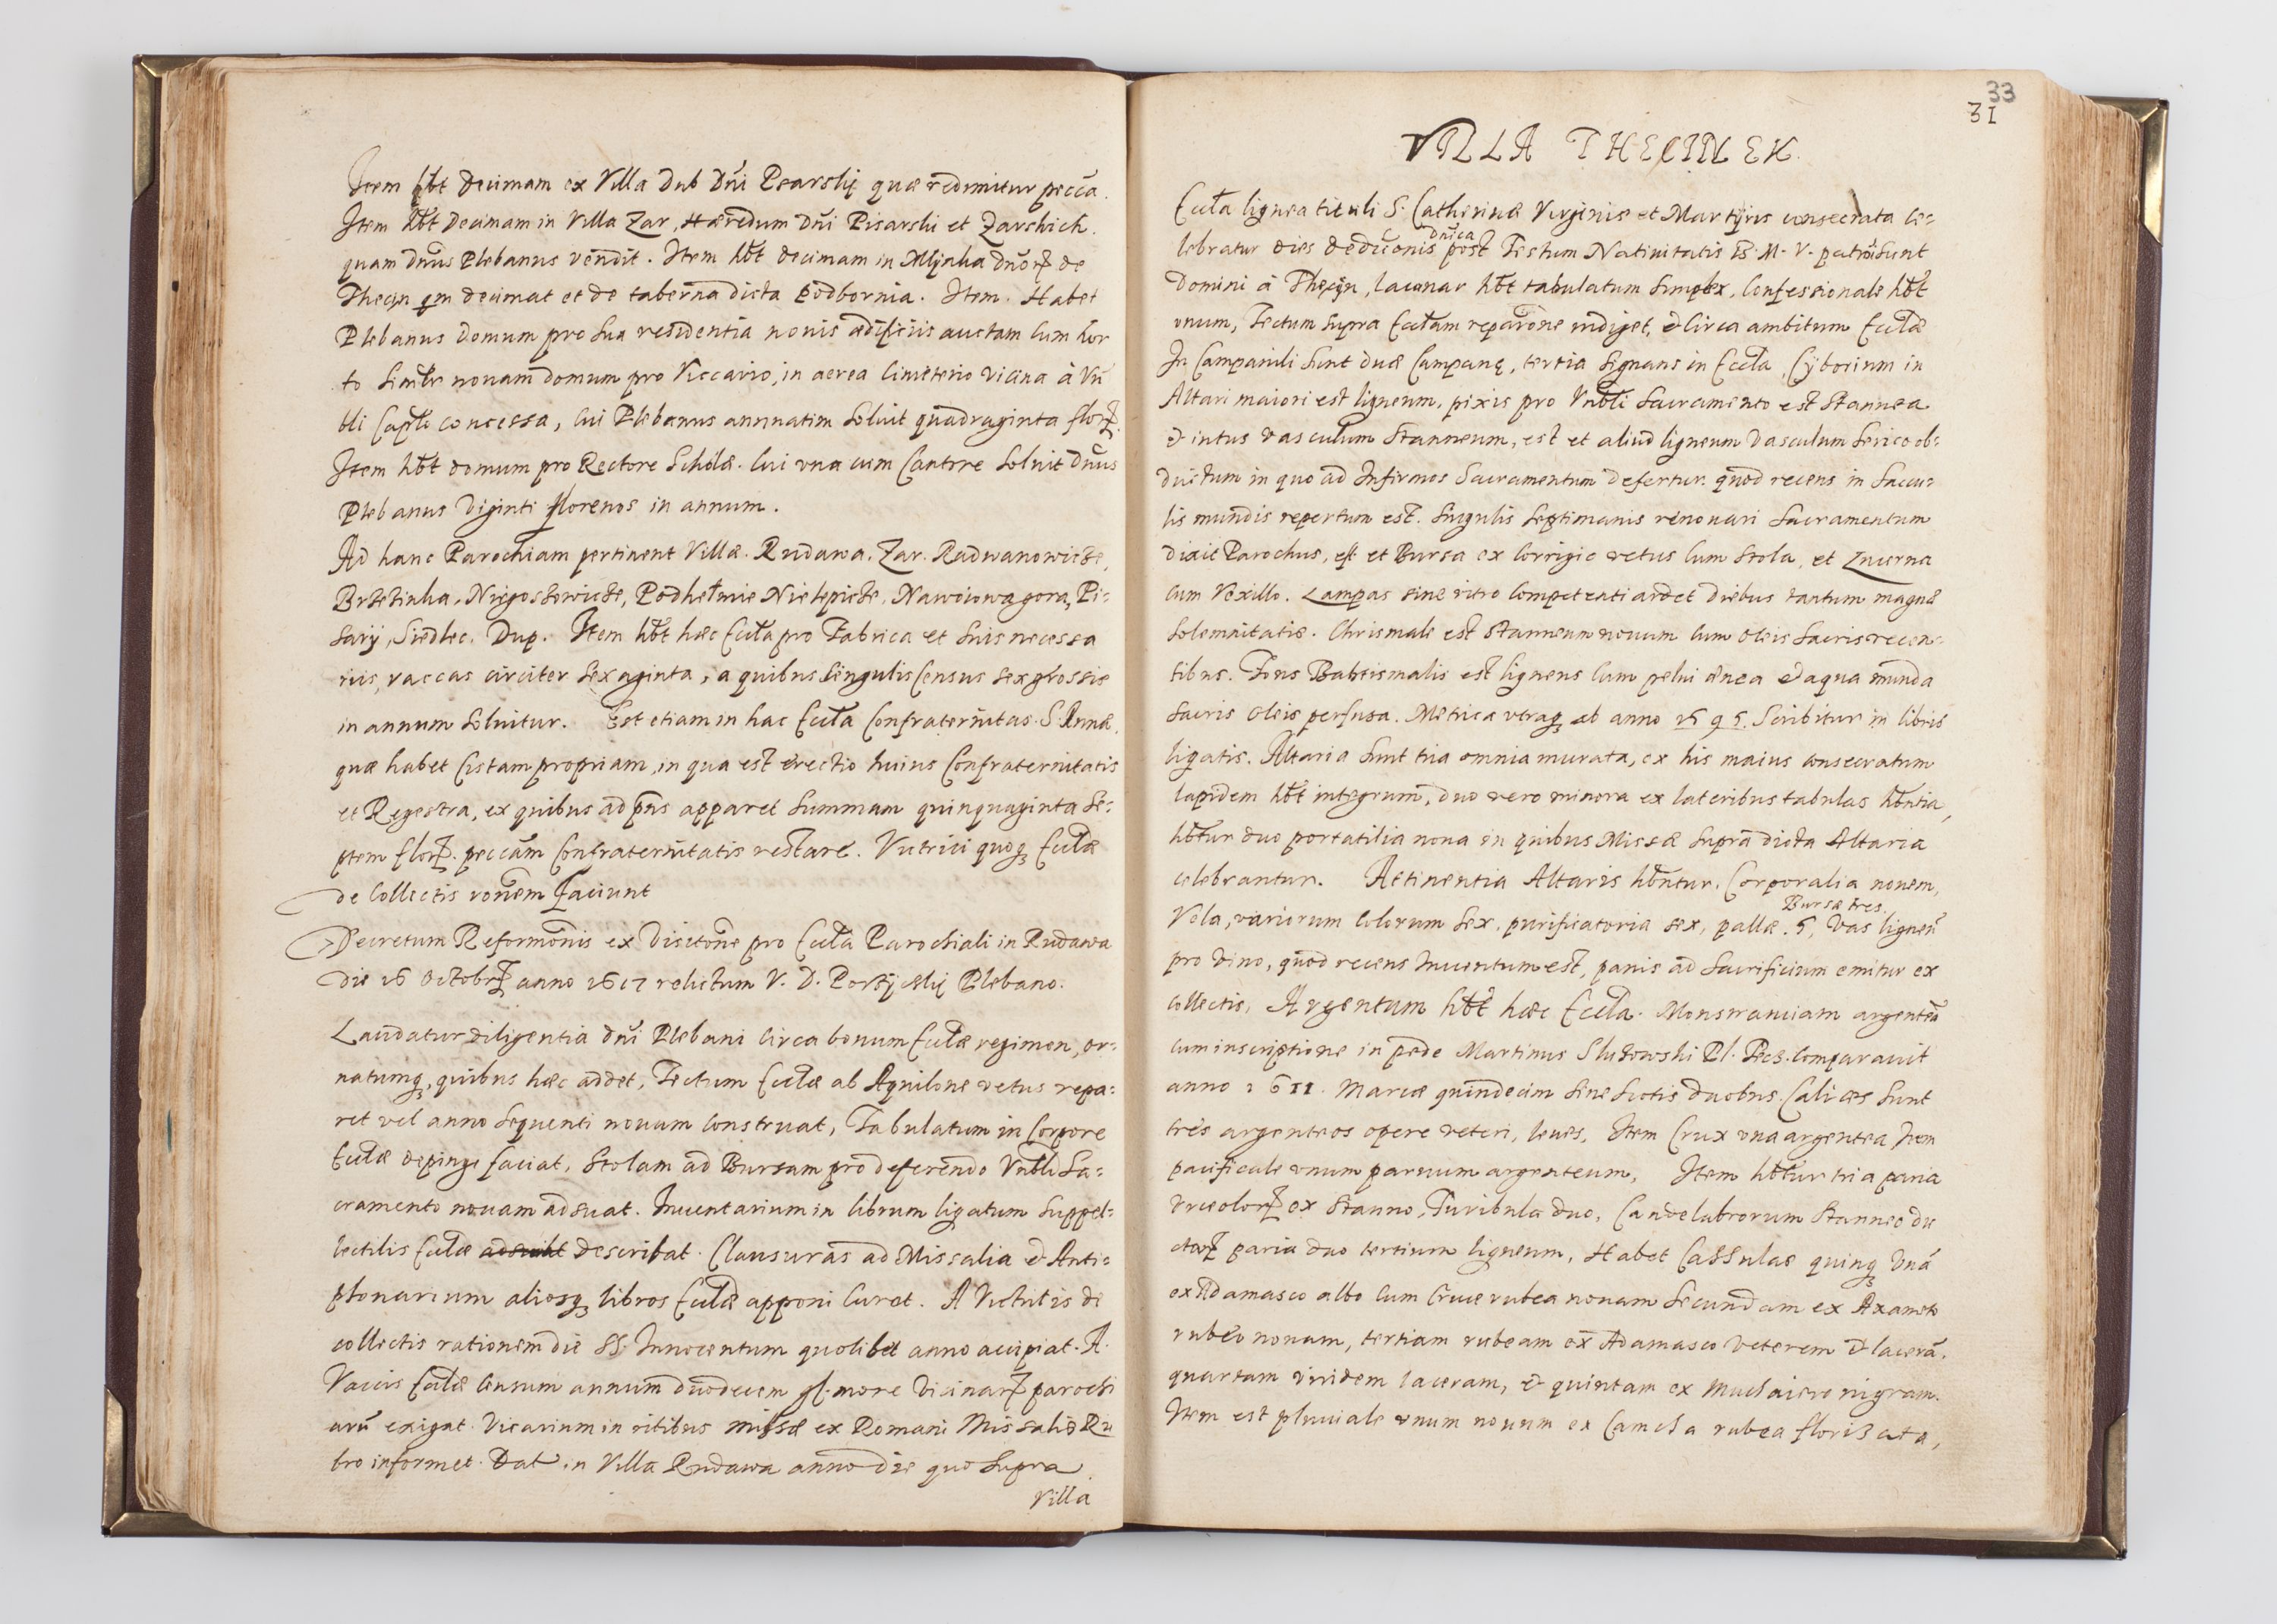 Item hƀt decimam ex Villa Dub Dńi Psarskį quæ redimitur pecc̃a.
Item hƀt Decimam in Villa Zar, Hæredum Dńi Pisarski et Zarskich.
quam Dnũs Plebanus vendit. Item hƀt decimam in Mlÿnka Dnõrꝝ de
Thecÿn qm decimat et de taberna dicta Podbornia. Item. Habet
Plebanus Domum pro sua residentia nouis ædificiis auctam cum hor
to simlr nouam domum pro Viccario, in aerea Cimeterio vicina à Vn̄
bli Caplo concessa, cui Plebanus annuatim soluit quadraginta florꝝ.
Item hƀt domum pro Rectore Scholæ. cui vna cum Cantore soluit Dnũs
Plebanus viginti florenos in annum.
Ad hanc Parochiam pertinent Villæ. Rudawa. Zar. Radwanowicze,
Brzezinka. Niegoszowicze, Podhełmie Nielepicze. Nawoiowagora, Pi=
sarÿ, Siedlec. Dup. Item hƀt hæc Eccła pro Fabrica et suis necessa
riis, vaccas circiter sexaginta, a quibus singulis Census sex grossis
in annum soluitur. Est etiam in hac Eccła Confraternitas. S. Annæ,
quæ habet Cistam propriam, in qua est erectio huius Confraternitatis
et Regestra, ex quibus ad pñs apparet summam quinquaginta se=
ptem florꝝ. peccãm Confraternitatis restare. Vitrici quoqꝫ Ecclæ
de Collectis ronẽm faciunt
Decretum Reformõnis ex Visitõne pro Eccła Parochiali in Rudawa
die 16 Octobrꝝ anno 1617 relictum V. D. Porzÿckį Plebano.
Laudatur diligentia Dńi Plebani circa bonum Ecclæ regimen, or=
natumqꝫ, quibus hæc addet, Tectum Ecclæ ab Aquilone vetus repa=
ret vel anno sequenti nouum construat, Tabulatum in Corpore
Ecclæ depingi faciat, Stolam ad Bursam pro deferendo Vnbli Sa=
cramento nouam adsuat. Inuentarium in librum ligatum suppel=
lectilis Ecclæ describat. Clausuras ad Missalia & Anti=
phonarium aliosqꝫ libros Ecclæ apponi curet. A Victritis de
collectis rationem die SS. Innocentum quolibet anno accipiat. A.
Vaccis Ecclæ censum annuum duodecem gl. more vicinarꝝ parochi
arũ exigat. Vicarium in ritibus missæ ex Romani Missalis Ru
bro informet. Dat in Villa Rudawa anno die quo supra
Villa
33
31
VILLA THECZINEK.
Eccła lignea tituli S. Catherinæ Virginis et Martÿris consecrata ce=
lebratur dies dedicõnis dnica post Festum Natiuitatis B. M. V. patrõni sunt
Domini à Thecÿn, lacunar hƀt tabulatum simplex, Confessionale hƀt
vnum, Tectum supra Ecclam reparõne indiget, & circa ambitum Ecclæ
In Campanili sunt duæ Campanę, tertia signans in Eccła, Cÿborium in
Altari maiori est ligneum, pixis pro Vnbli Sacramento est Stannea
& intus vasculum Stanneum, est et aliud ligneum vasculum serico ob=
ductum in quo ad Infirmos Sacramentum defertur. quod recens in saccu=
lis mundis repertum est. singulis septimanis renouari Sacramentum
dixit Parochus, est et Bursa ex corrigie vetus cum Stola, et Lucerna
cum Vexillo. Lampas sine vitro competenti ardet diebus tantum magnæ
solemnitatis. Chrismale est stanneum nouum cum oleis sacris recen=
tibus. Fons Babtismalis est ligneus cum pelui ænea & aqua munda
sacris oleis perfusa. Metrica vtraqꝫ ab anno 1595. Scribitur in libris
ligatis. Altaria sunt tria omnia murata, ex his maius consecratum
lapidem hƀt integrum, duo vero minora ex lateribus tabulas hƀntia,
hƀtur duo portatilia noua in quibus Missæ supra dicta Altaria
celebrantur. Attinentia Altaris hƀntur. Corporalia nouem,
Bursæ tres.
Vela, variorum colorum sex, purificatoria sex, pallæ. 5, Vas ligneũ
pro vino, quod recens Inuentum est, panis ad sacrificium emitur ex
collectis, Argentum hƀt hæc Eccła. Monstranciam argenteã
cum inscriptione in pede Martinus Slutowski Pl. Tecz. comparauit
anno 1611. Marcæ quindecim sine scotis duobus. Calices sunt
tres argenteos opere veteri, leues, Item Crux vna argentea Item
pacificale vnum paruum argenteum, Item hƀtur tria paria
vrceolorꝝ ex stanno, Turibula duo, Candelabrorum stanneo du
ctorꝝ paria duo tertium ligneum, Habet Cassulas quinqꝫ vnã
ex Adamasco albo cum Cruce rubea nouam secundam ex Axamito
rubeo nouam, tertiam rubeam ex Adamasco veterem & lacerã.
quartam viridem laceram, & quintam ex Muchaiero nigram.
Item est pluuiale vnum nouum ex Camcha rubea florizata,